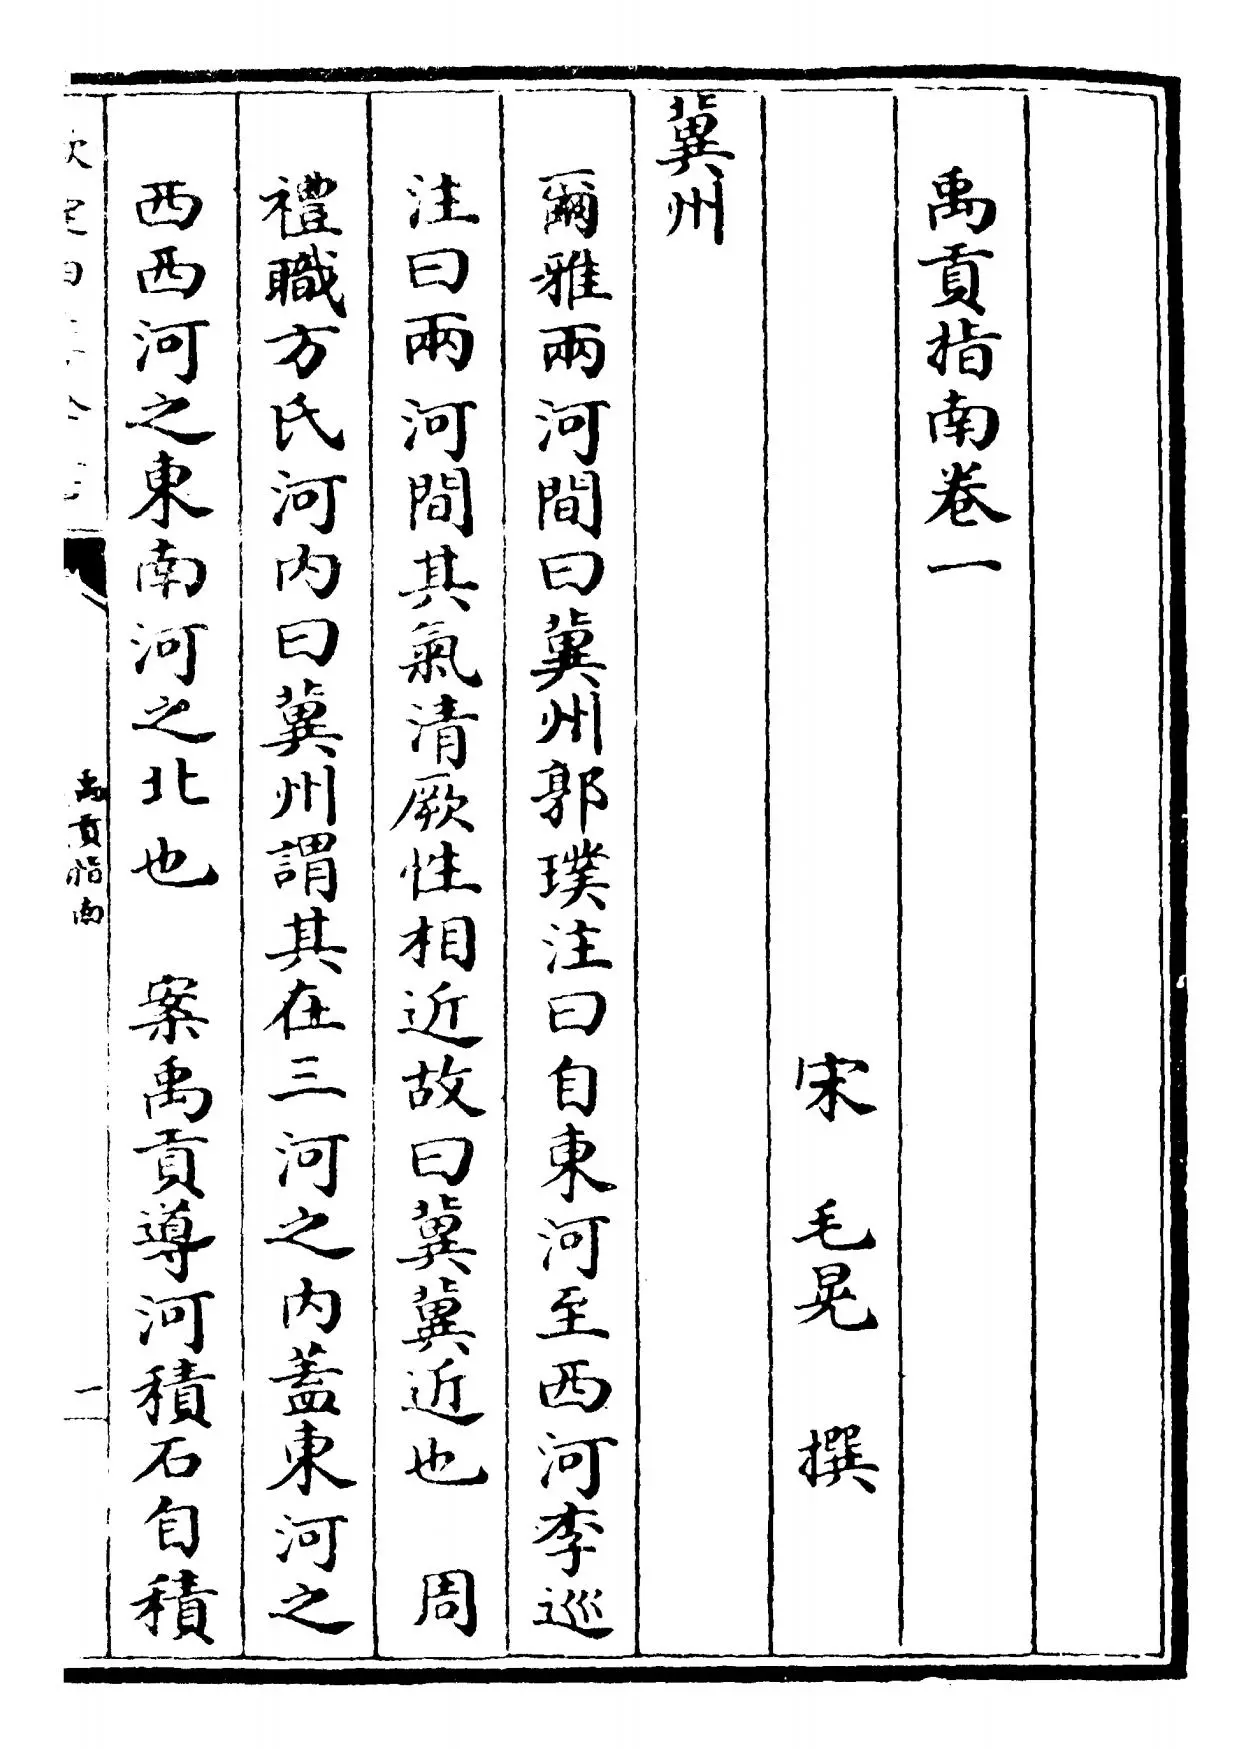 禹貢指南卷一
宋 毛晃 撰
冀州
爾雅兩河間曰冀州郭璞注曰自東河至西河李巡
注曰兩河間其氣清厥性相近故曰冀冀近也 周
禮職方氏河内曰冀州謂其在三河之内蓋東河之
西西河之東南河之北也 案禹貢導河積石自積
禹貢指南
一